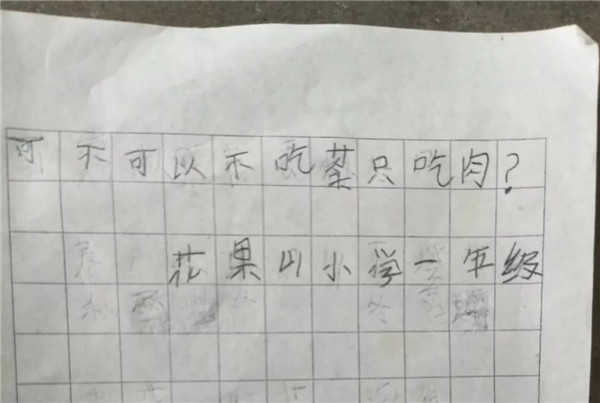 可不可以不吃菜只吃肉?
花果山小学一年级